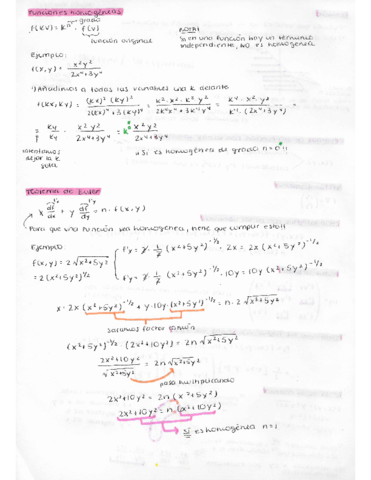 Funciones homogéneas
f(KV) = kⁿ · f(V)
grado
función original
NOTA!
Si en una función hay un término
independiente, NO es homogénea
Ejemplo:
f(x,y) = x²y² / 2x⁴+3y⁴
Añadimos a todas las variables una k delante
f(kx,ky) = (kx)² (ky)² / 2(kx)⁴+3(ky)⁴ = k²·x²·k²·y² / 2k⁴x⁴+3k⁴y⁴ = k⁴·x²·y² / k⁴·(2x⁴+3y⁴) =
= k⁴ / k⁴ · x²y² / 2x⁴+3y⁴ = k⁰ x²y² / 2x⁴+3y⁴
intentamos
dejar la k
sola
* Sí es homogénea de grado n=0!!
Teorema de Euler
x df/dx + y df/dy = n · f(x,y)
Para que una función sea homogénea, tiene que cumplir esto!!
Ejemplo:
f(x,y) = 2√x²+5y²
= 2(x²+5y²)^1/2
f'x = 2 · 1/2 (x²+5y²)^-1/2 · 2x = 2x (x²+5y²)^-1/2
f'y = 2 · 1/2 (x²+5y²)^-1/2 · 10y = 10y (x²+5y²)^-1/2
x · 2x (x²+5y²)^-1/2 + y · 10y (x²+5y²)^-1/2 = n · 2√x²+5y²
sacamos factor común
(x²+5y²)^-1/2 · (2x²+10y²) = 2n√x²+5y²
2x²+10y² / √x²+5y² = 2n√x²+5y²
pasa multiplicando
2x²+10y² = 2n (x²+5y²)
2x²+10y² = n (2x²+10y²)
Sí es homogénea n=1